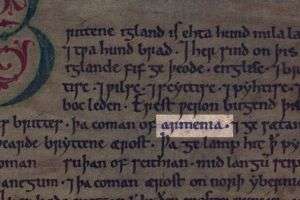 Brittene igland is ehta hund mila la
⁊ tƿa hund brad. ⁊ her sind on þis
iglande fif ge þeode. englisc. ⁊ b
tisc. ⁊ ƿilsc. ⁊ scyttisc. ⁊ pyhtisc. ⁊
boc leden. Erest ƿeron bugend þi
brittes. þa coman of armenia. ⁊ ge sætan
ƿearde bryttene ærost. þa ge lamp hit þ
coman suþan of scithian. mid langu
⁊ þa coman ærost on norþ ybern